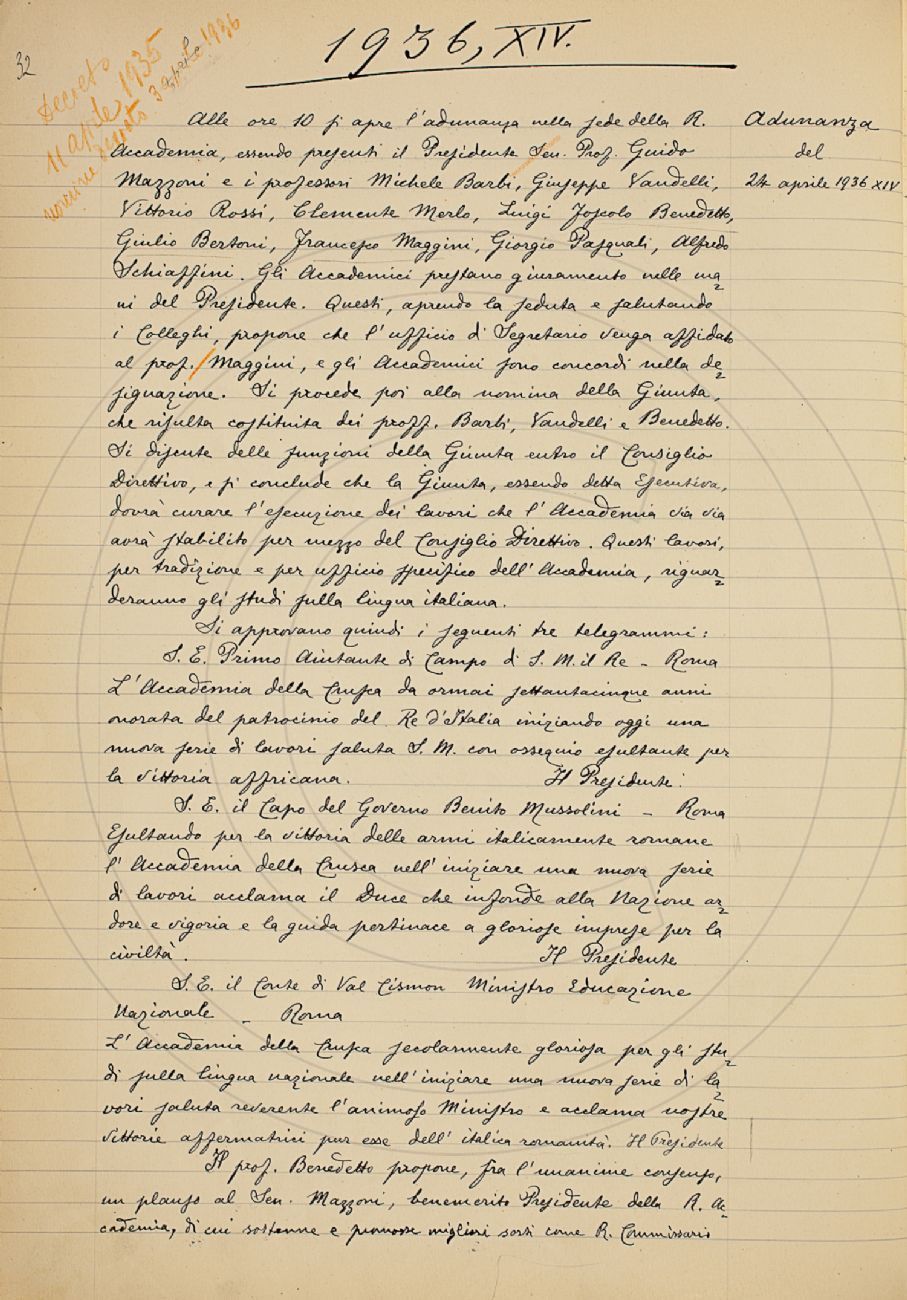 32
1936, XIV.
Decreto
11 aprile 1935
nomine decreto 3 aprile 1936
Adunanza
del
24 aprile 1936 XIV
Alle ore 10 si apre l'adunanza nella sede della R.
Accademia, essendo presenti il Presidente Sen. Prof. Guido
Mazzoni e i professori Michele Barbi, Giuseppe Vandelli,
Vittorio Rossi, Clemente Merlo, Luigi Foscolo Benedetto,
Giulio Bertoni, Francesco Maggini, Giorgio Pasquali, Alfredo
Schiaffini. Gli Accademici prestano giuramento nelle ma=
ni del Presidente. Questi, aprendo la seduta e salutando
i Colleghi, propone che l'ufficio di Segretario venga affidato
al prof. / Maggini, e gli Accademici sono concordi nella de=
signazione. Si procede poi alla nomina della Giunta,
che risulta costituita dei proff. Barbi, Vandelli e Benedetto.
Si discute delle funzioni della Giunta entro il Consiglio
Direttivo, e si conclude che la Giunta, essendo detta Esecutiva,
dovrà curare l'esecuzione dei lavori che l'Accademia via via
avrà stabilito per mezzo del Consiglio Direttivo. Questi lavori,
per tradizione e per ufficio specifico dell'Accademia, riguar=
deranno gli studi sulla lingua italiana.
Si approvano quindi i seguenti tre telegrammi:
S. E. Primo Aiutante di Campo di S. M. il Re - Roma
L'Accademia della Crusca da ormai settantacinque anni
onorata del patrocinio del Re d'Italia iniziando oggi una
nuova serie di lavori saluta S. M. con ossequio esultante per
la vittoria affricana. Il Presidente.
S. E. il Capo del Governo Benito Mussolini - Roma
Esultando per la vittoria delle armi italicamente romane
l'Accademia della Crusca nell'iniziare una nuova serie
di lavori acclama il Duce che infonde alla Nazione ar=
dore e vigoria e la guida pertinace a gloriose imprese per la
civiltà. Il Presidente
S. E. il Conte di Val Cismon Ministro Educazione
Nazionale - Roma
L'Accademia della Crusca secolarmente gloriosa per gli stu=
di sulla lingua nazionale nell'iniziare una nuova serie di la=
vori saluta reverente l'animoso Ministro e acclama nostre
vittorie affermatrici pur esse dell'italica romanità. Il Presidente
Il prof. Benedetto propone, fra l'unanime consenso,
un plauso al Sen. Mazzoni, benemerito Presidente della R. Ac=
cademia, di cui sostenne e promosse migliori sorti come R. Commissario